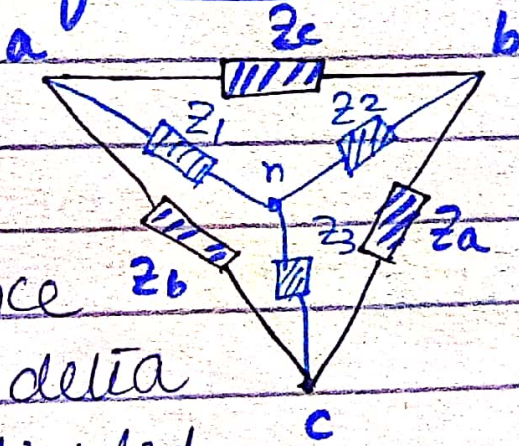 a Zc b
Z1 Z2
n
Z3 Za
Zb
delta
c